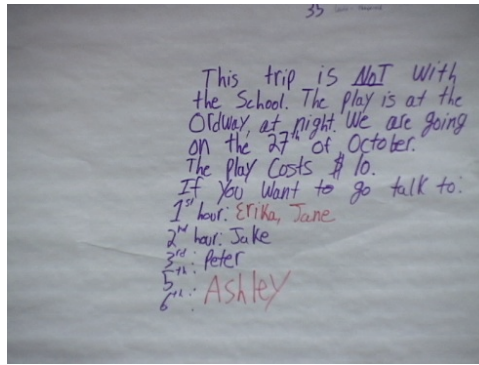 33
This trip is NOT With
the School. The Play is at the
Ordway, at night. We are going
on the 27th of October.
The Play Costs $ 10.
If You Want to go talk to:
1st hour: Erika, Jane
2nd hour: Jake
3rd: Peter
5th:
6th: Ashley